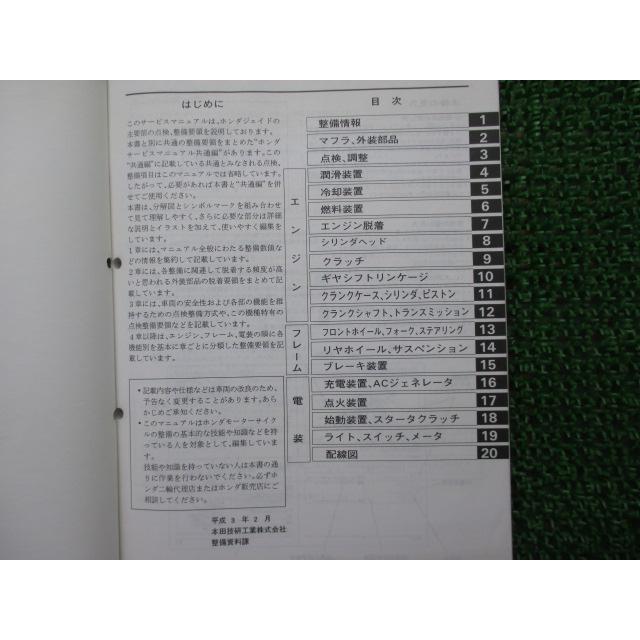 はじめに
このサービスマニュアルは、ホンダジェイドの
主要部の点検、整備要領を説明しております。
本書と別に共通の整備要領をまとめた"ホンダ
サービスマニュアル共通編"があります。この
"共通編"に記載している共通とみなされる点検、
整備項目はこのマニュアルでは省略しています。
したがって、必要があれば本書と"共通編"を併
せてご使用ください。
本書は、分解図とシンボルマークを組み合わせ
て見て理解しやすく、さらに必要な部分は詳細
な説明とイラストを加えて、使いやすく編集を
しています。
1章には、マニュアル全般にわたる整備数値な
どの情報を集約して記載しています。
2章には、各整備に関連して脱着する頻度が高
いと思われる外装部品の脱着要領をまとめて記
載しています。
3章には、車両の安全性および各部の機能を維
持するための点検整備方式や、この機種特有の
点検整備要領などを記載しています。
4章以降は、エンジン、フレーム、電装の順に各
機能別を基本に章ごとに分類した整備要領を記
載しています。
・記載内容や仕様などは車両の改良のため、
予告なく変更することがあります。あら
かじめご承知ください。
・このマニュアルはホンダモーターサイク
ルの整備の基本的な技能や知識などを持
っている人を対象として、編集していま
す。
技能や知識を持っていない人は本書の通
りに作業を行わないでください。必ずホ
ンダ二輪代理店またはホンダ販売店にご
相談してください。
平成 3 年 2 月
本田技研工業株式会社
整備資料課
目 次
整備情報 1
マフラ、外装部品 2
点検、調整 3
エンジン
潤滑装置 4
冷却装置 5
燃料装置 6
エンジン脱着 7
シリンダヘッド 8
クラッチ 9
ギヤシフトリンケージ 10
クランクケース、シリンダ、ピストン 11
クランクシャフト、トランスミッション 12
フレーム
フロントホイール、フォーク、ステアリング 13
リヤホイール、サスペンション 14
ブレーキ装置 15
電装
充電装置、ACジェネレータ 16
点火装置 17
始動装置、スタータクラッチ 18
ライト、スイッチ、メータ 19
配線図 20